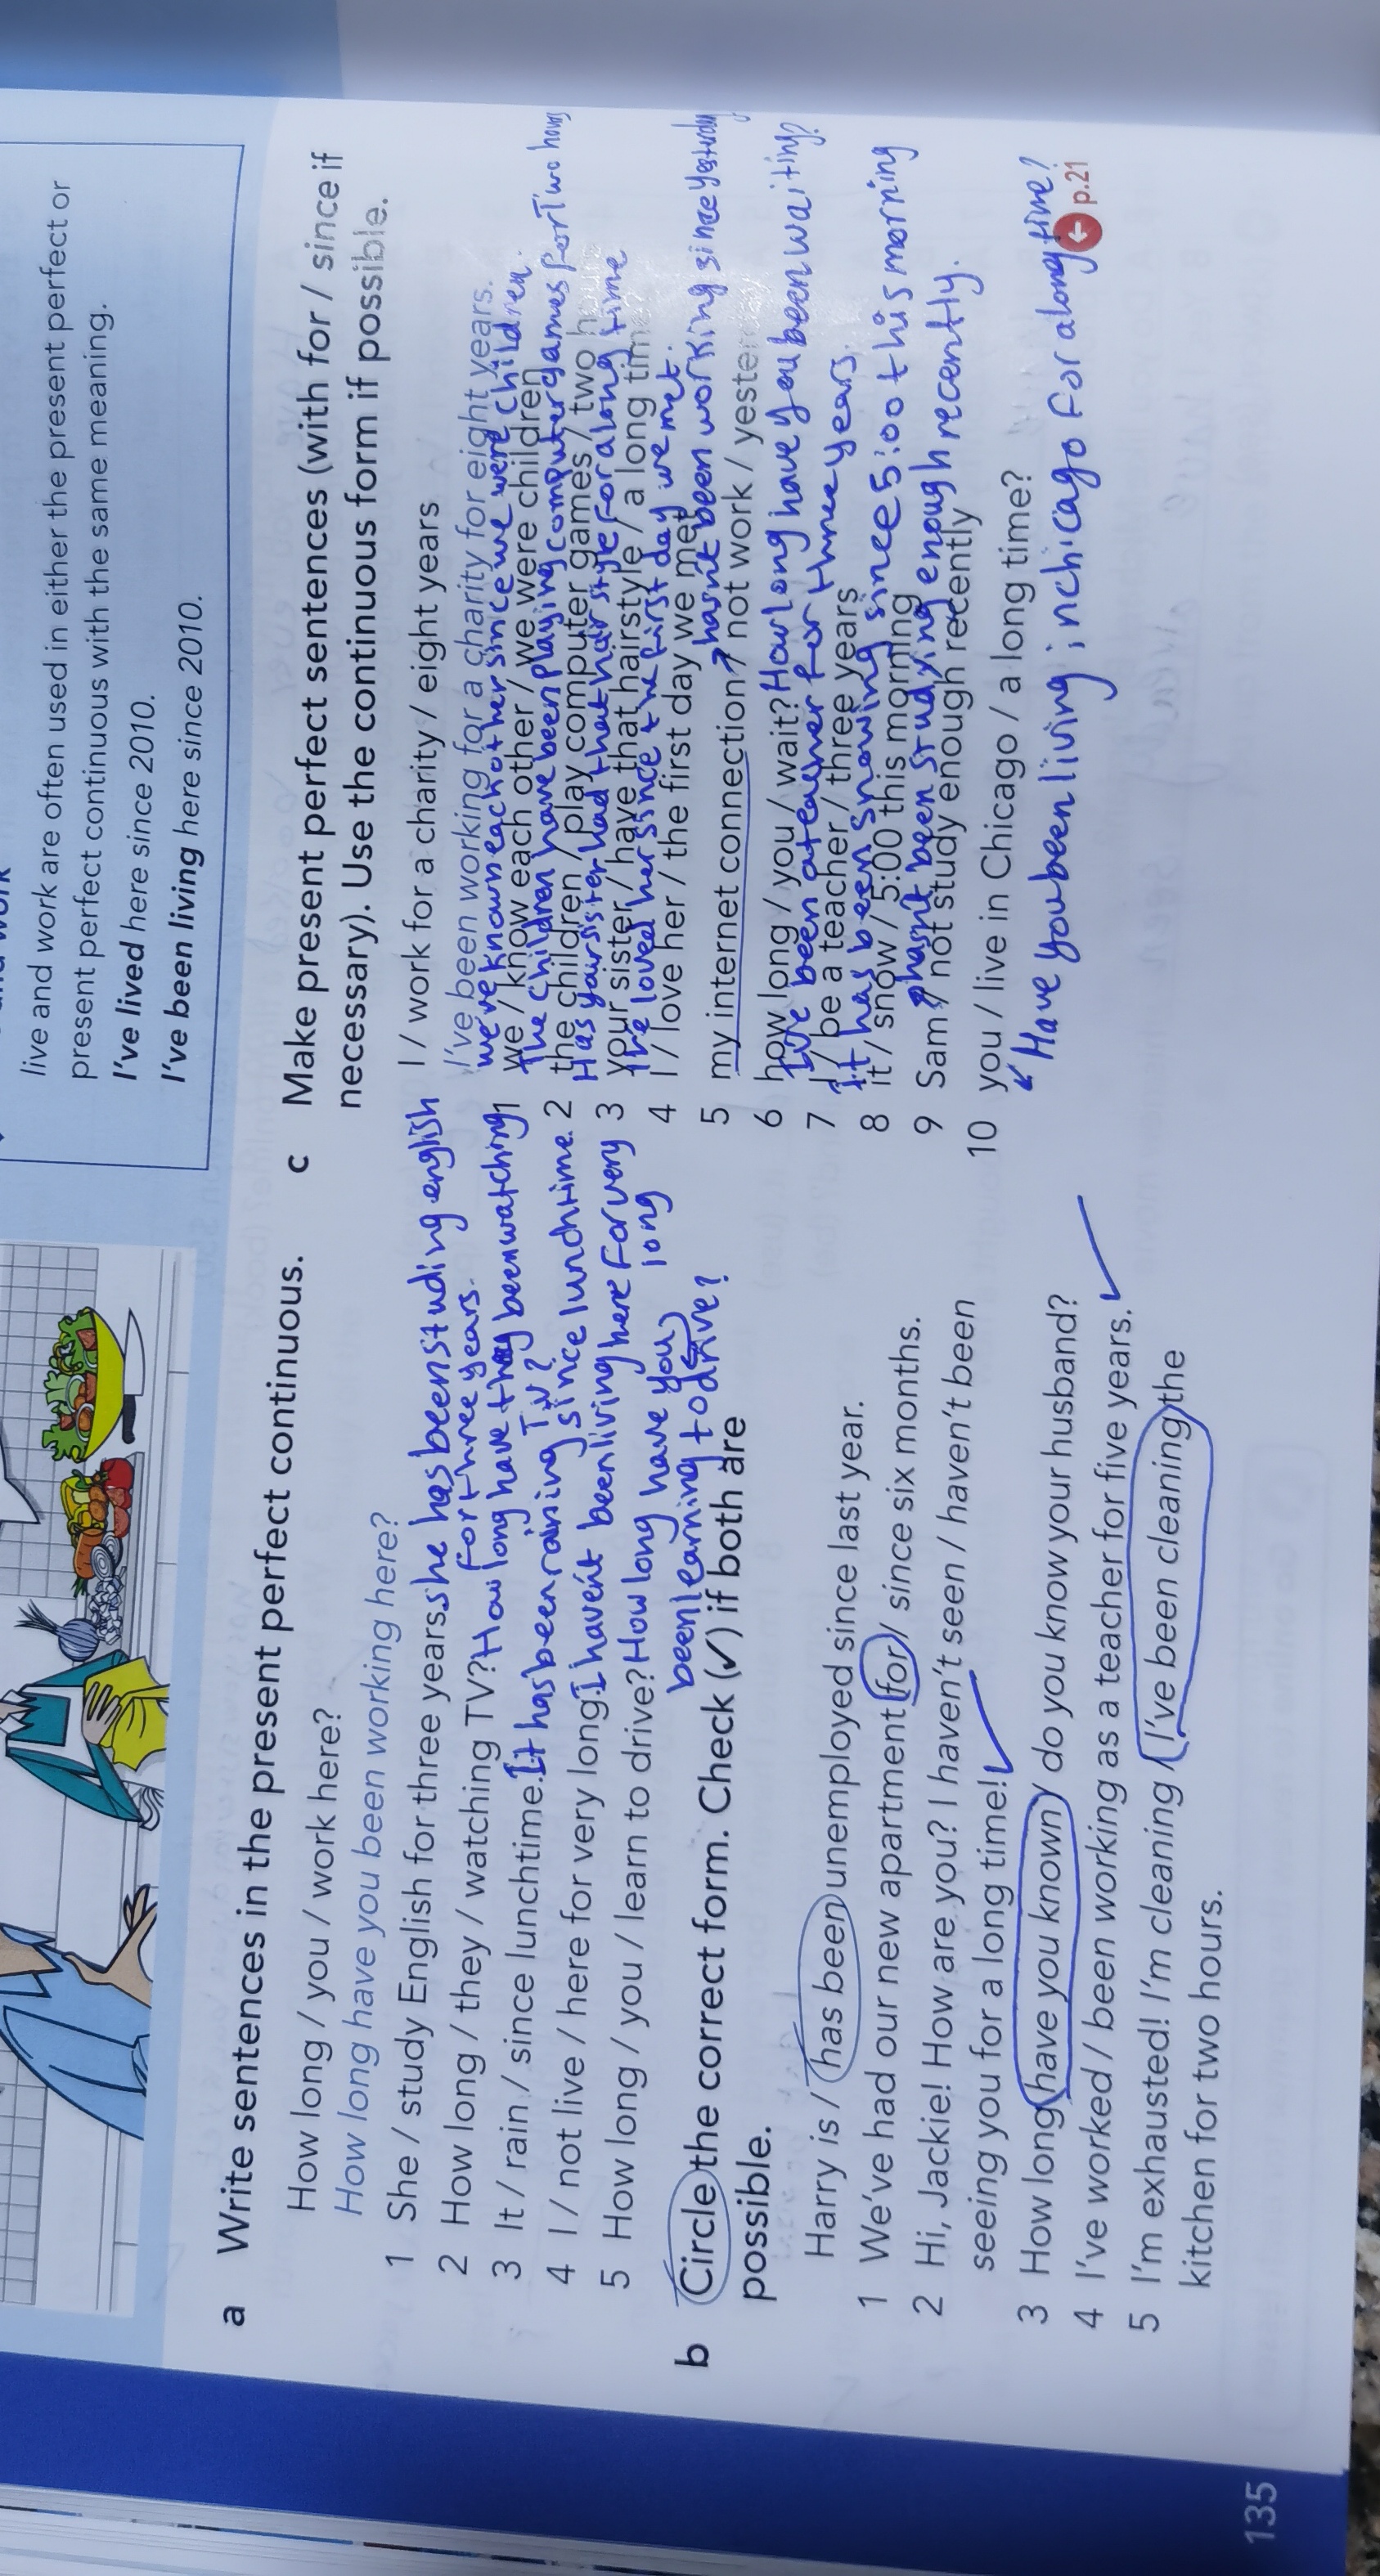 live and work are often used in either the present perfect or
present perfect continuous with the same meaning.
I've lived here since 2010.
I've been living here since 2010.
a Write sentences in the present perfect continuous.
How long / you / work here?
How long have you been working here?
1 She / study English for three years. she has been studing english
for three years.
2 How long / they / watching TV? How long have they been watching
TV?
3 It / rain / since lunchtime. It has been raining since lunchtime.
4 I / not live / here for very long. I haven't been living here for very
long
5 How long / you / learn to drive? How long have you
been learning to drive?
b Circle the correct form. Check (✓) if both are
possible.
Harry is / has been unemployed since last year.
1 We've had our new apartment for / since six months.
2 Hi, Jackie! How are you? I haven't seen / haven't been
seeing you for a long time! ✓
3 How long have you known / do you know your husband?
4 I've worked / been working as a teacher for five years. ✓
5 I'm exhausted! I'm cleaning / I've been cleaning the
kitchen for two hours.
c Make present perfect sentences (with for / since if
necessary). Use the continuous form if possible.
I / work for a charity / eight years
I've been working for a charity for eight years.
we've known each other since we were children.
1 we / know each other / we were children
The children have been playing computer games for Two hours
2 the children / play computer games / two hours
Has your sister had that hair style for a long time
3 your sister / have that hairstyle / a long time?
I've loved her since the first day we met.
4 I / love her / the first day we met
hasn't been working since yesterday
5 my internet connection / not work / yesterday
6 how long / you / wait? How long have you been waiting?
I've been a teacher for three years.
7 I / be a teacher / three years
It has been snowing since 5:00 this morning
8 it / snow / 5:00 this morning
hasn't been studying enough recently.
9 Sam / not study enough recently
10 you / live in Chicago / a long time?
Have you been living in chicago for a long time?
p.21
135